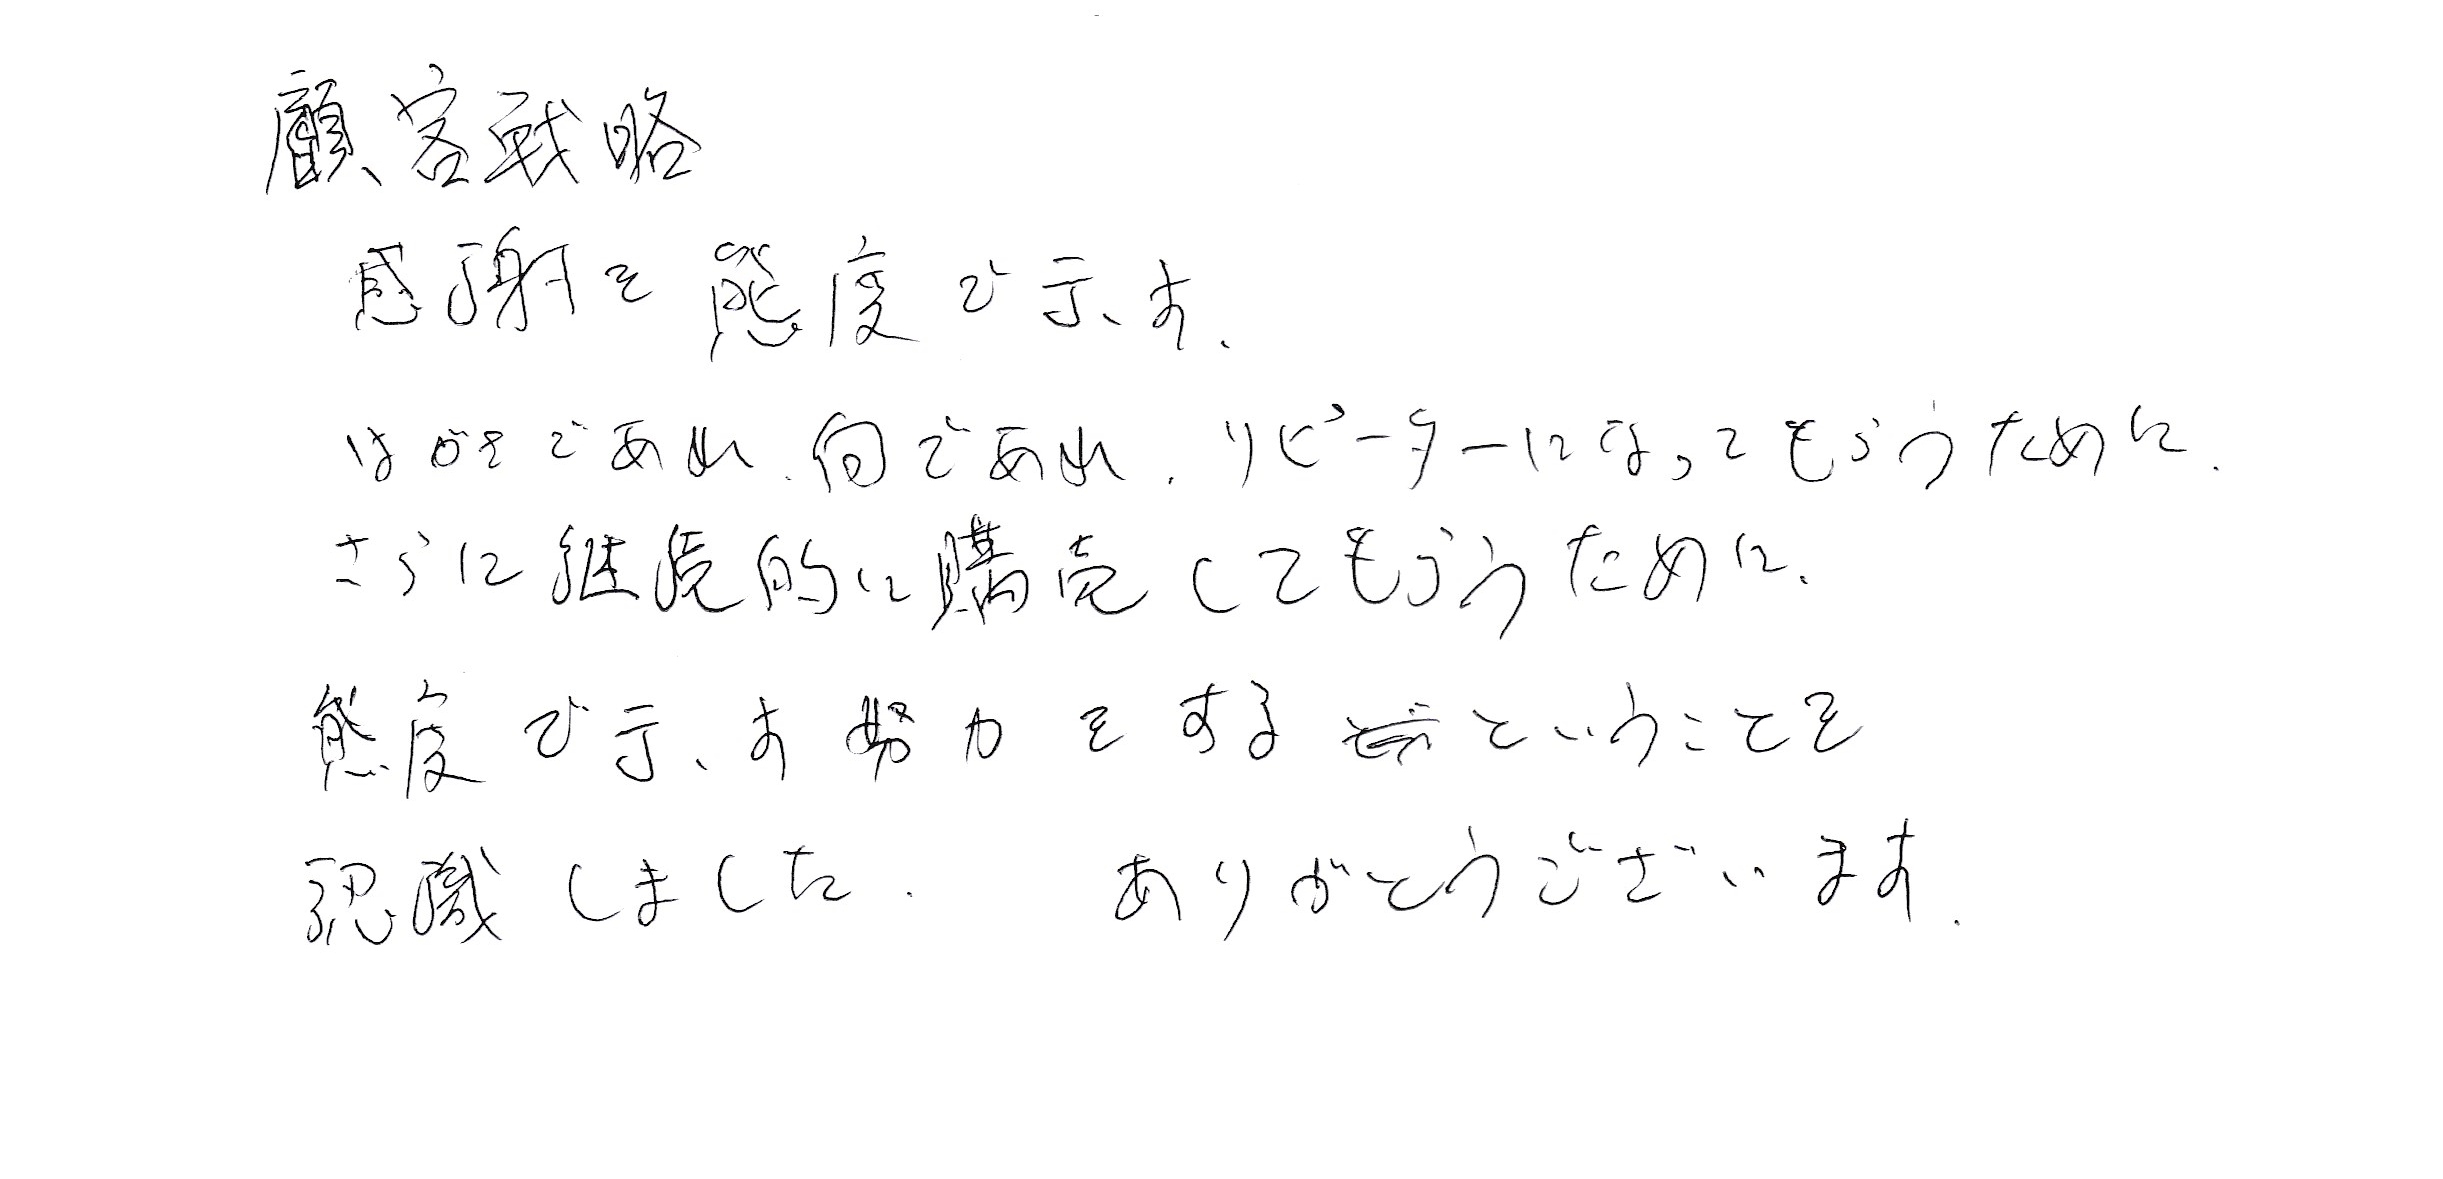 顧客戦略
感謝を態度で示す.
はがきであれ、何であれ、リピーターになってもらうために、
さらに継続的に購売してもらうために、
態度で示す努力をするということを
認識しました. ありがとうございます.